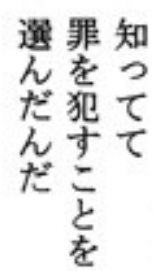 知ってて
罪を犯すことを
選んだんだ